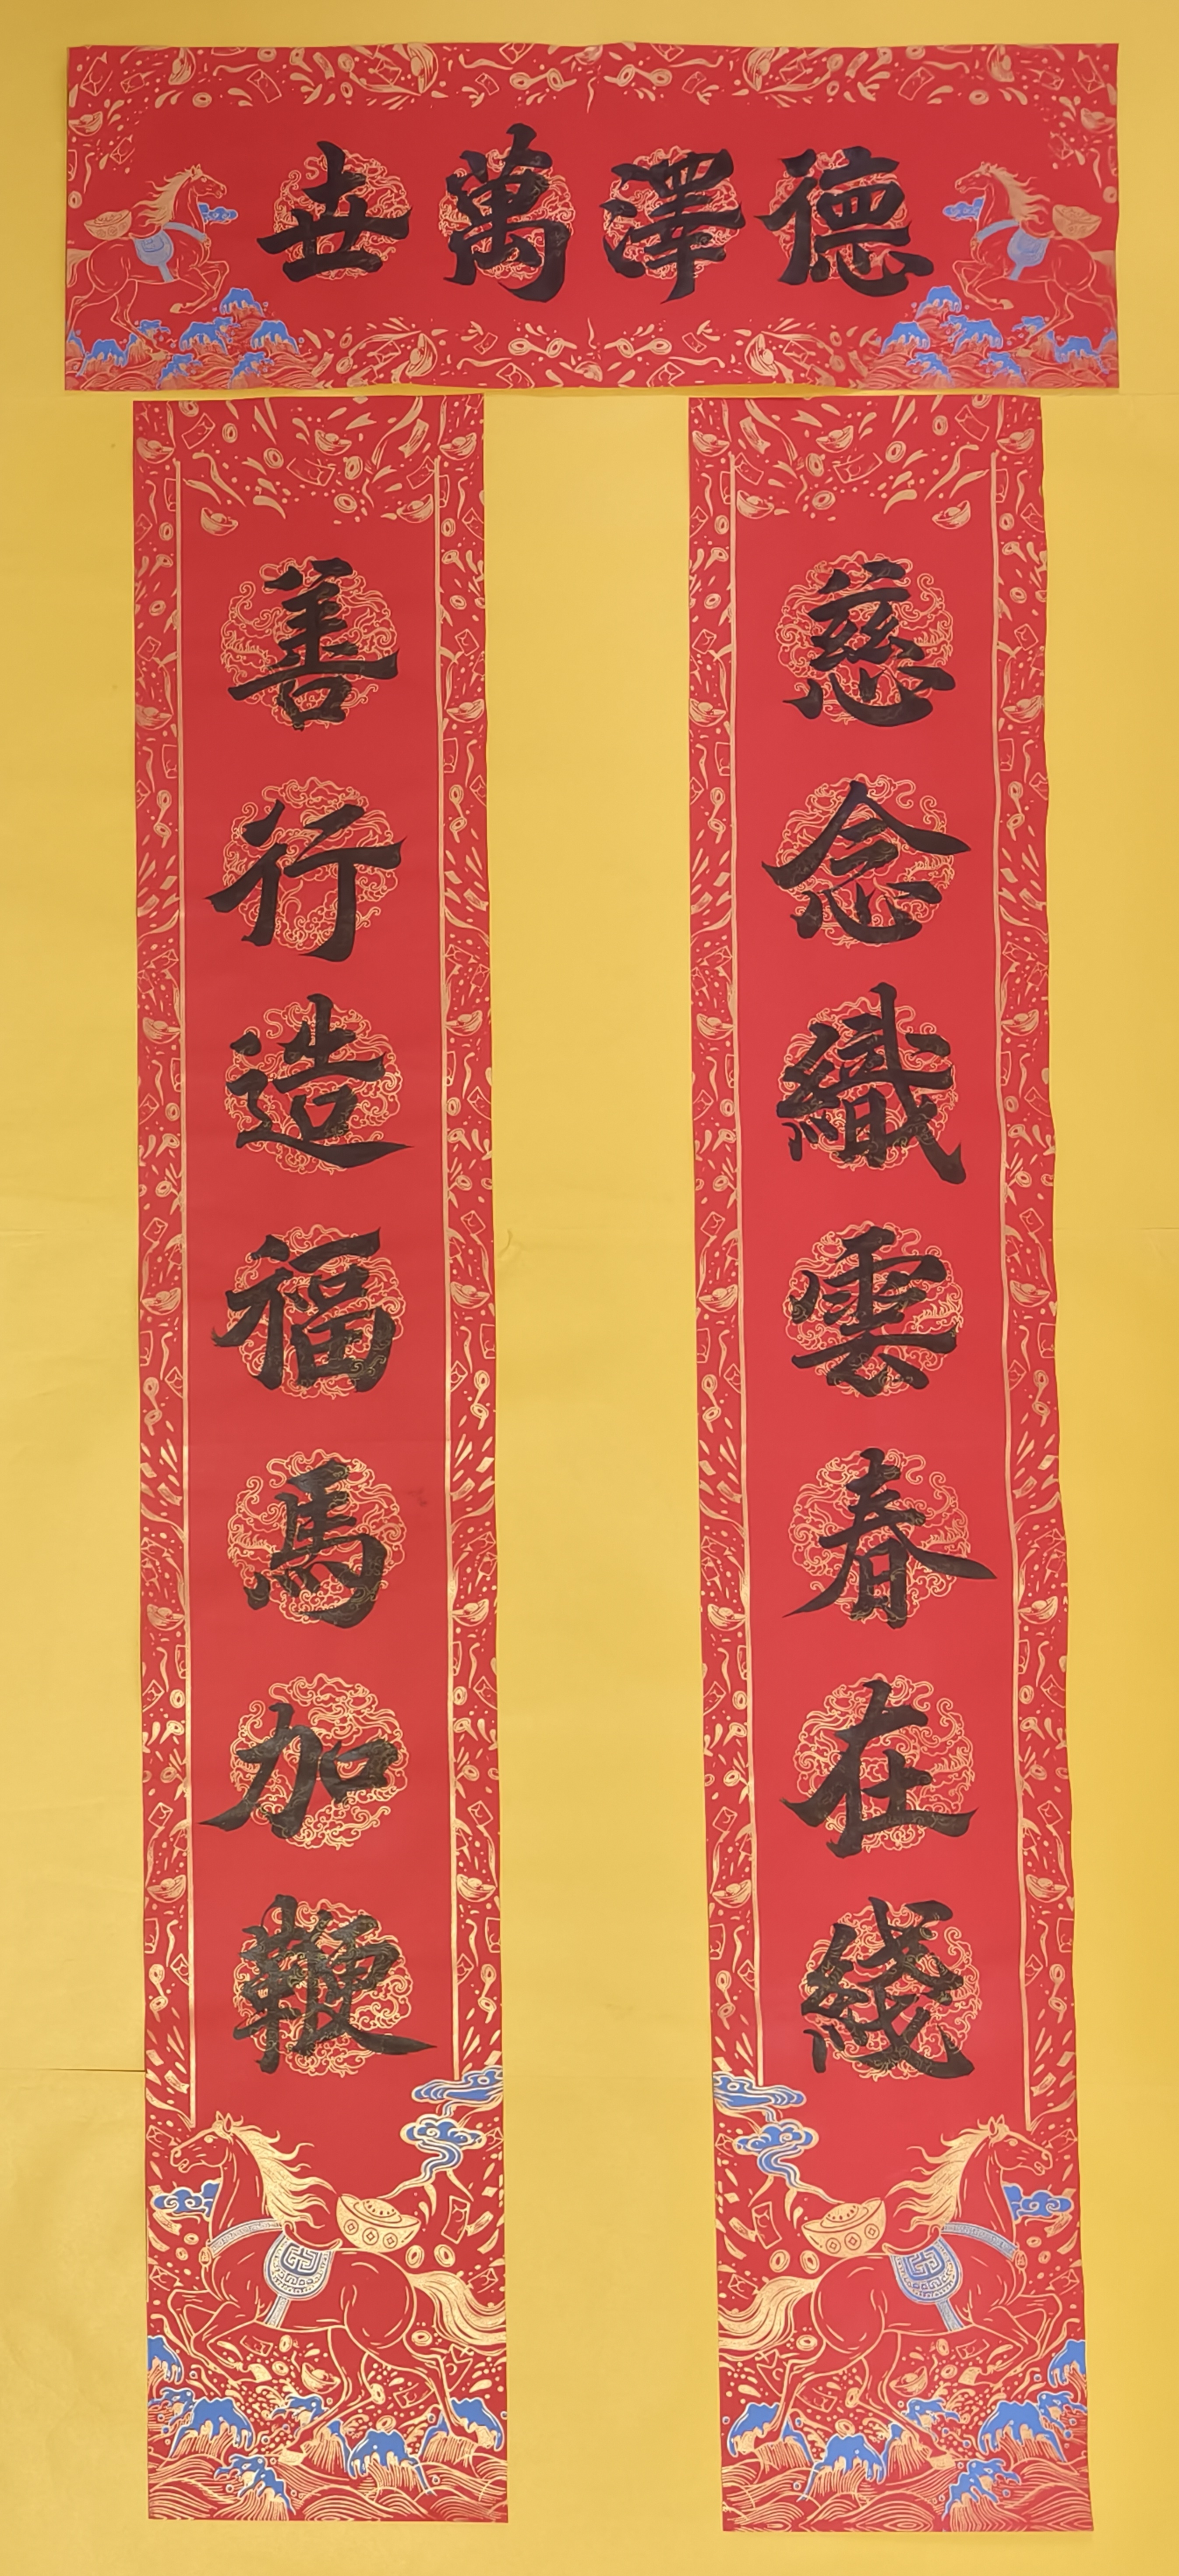 德澤萬世
慈念織雲春在綫
善行造福馬加鞭